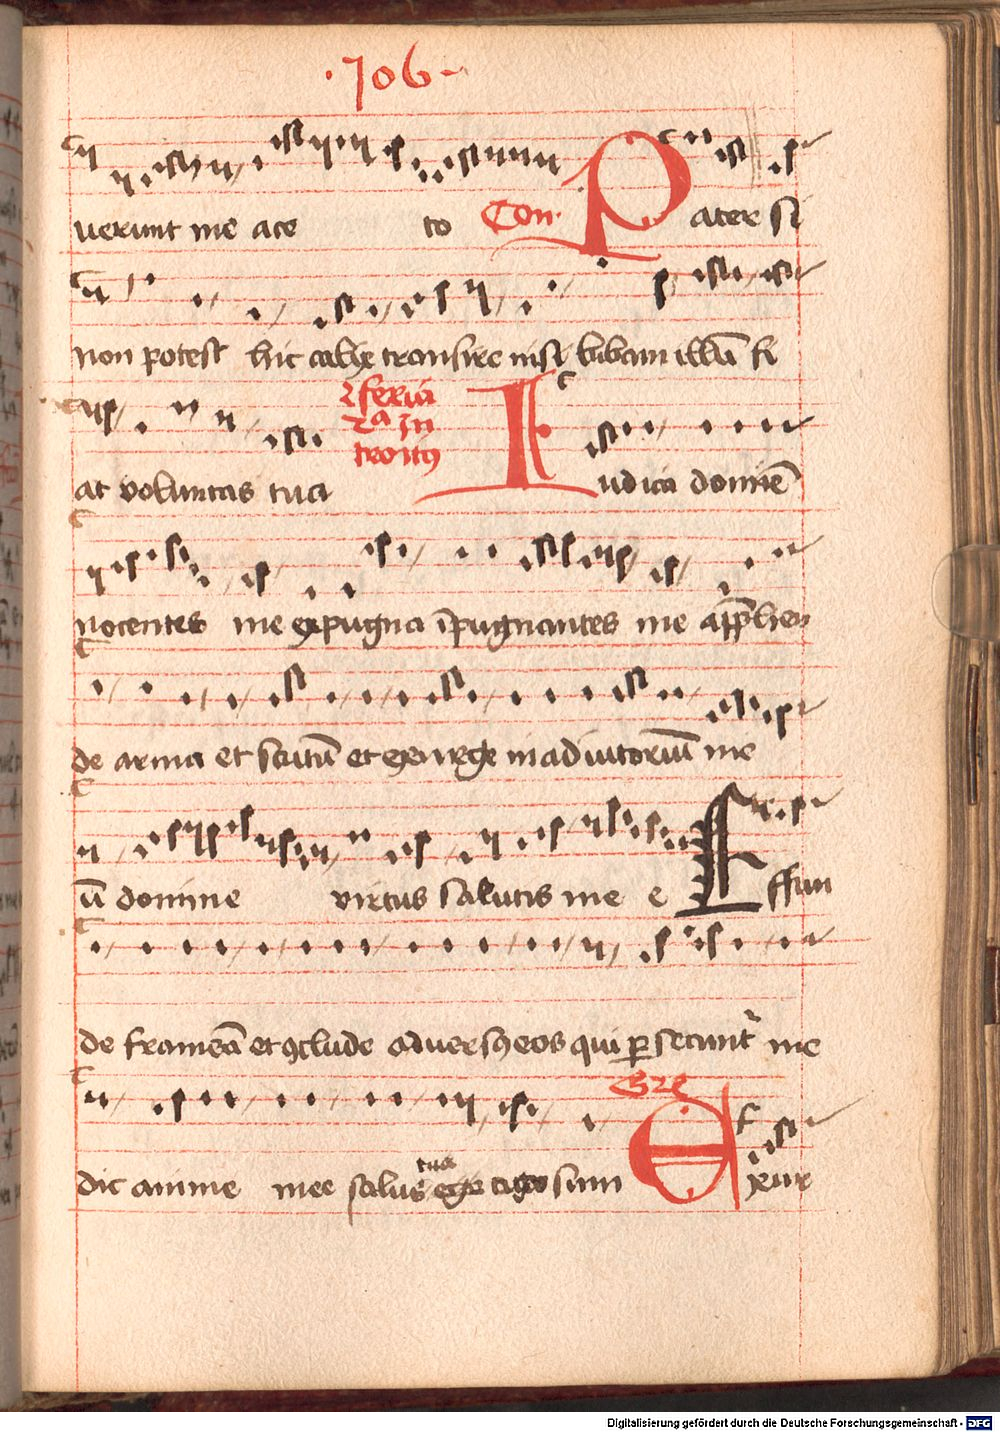 ·706·
uerunt me ace to Con· Pater si
non potest hic calix transire nisi bibam illū fi
at voluntas tua
feria
2ª In
troitꝰ
Iudica domine
nocentes me expugna īpugnantes me apprehen
de arma et scutū et exurge in adiutoriū me
ū domine virtus salutis me e Effun
de frameā et ꝯclude aduersꝰ eos qui ꝑsecunt᷑ me
Gre
tua
dic anime mee salus ego sum Exur
Digitalisierung gefördert durch die Deutsche Forschungsgemeinschaft - DFG